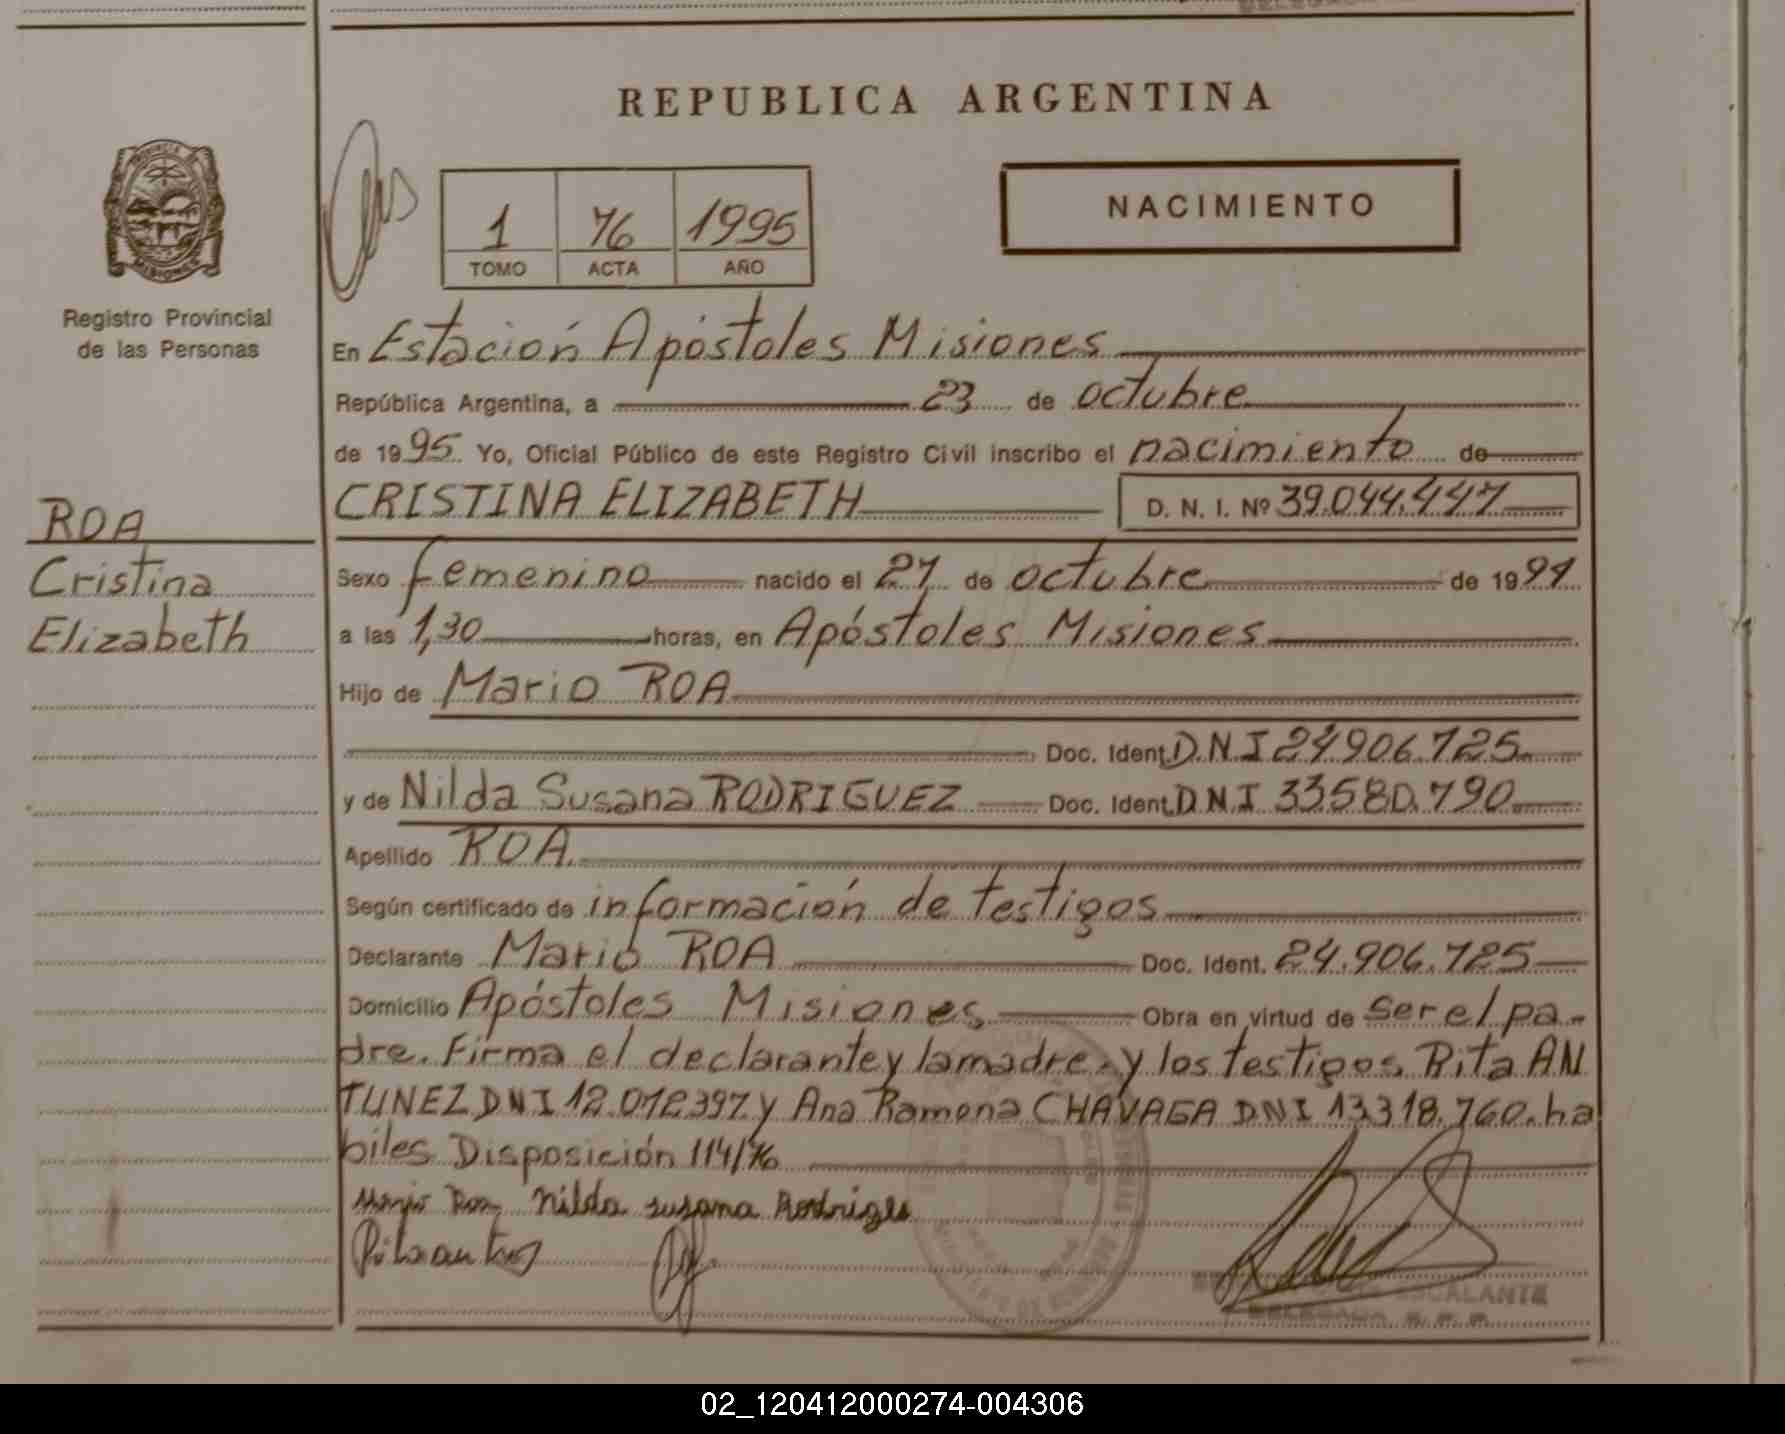 REPUBLICA ARGENTINA
PROVINCIA DE
MISIONES
Registro Provincial
de las Personas
1 76 1995
TOMO ACTA AÑO
NACIMIENTO
En Estación Apóstoles Misiones
República Argentina, a 23 de octubre
de 1995 Yo, Oficial Público de este Registro Civil inscribo el nacimiento de
CRISTINA ELIZABETH D. N. I. Nº 39.044.447
ROA
Cristina
Elizabeth
Sexo femenino nacido el 27 de octubre de 1994
a las 1,30 horas, en Apóstoles Misiones
Hijo de Mario ROA
Doc. Ident. D.N.I 24.906.725
y de Nilda Susana RODRIGUEZ Doc. Ident. DNI 33.580.790
Apellido ROA
Según certificado de información de testigos
Declarante Mario ROA Doc. Ident. 24.906.725
Domicilio Apóstoles Misiones Obra en virtud de ser el pa-
dre. Firma el declarante y la madre. y los testigos. Rita AN
TUNEZ DNI 12.012.397 y Ana Ramona CHAVAGA DNI 13.318.760. ha
biles Disposición 114/76
Mario Roa Nilda susana Rodrigues
ESCALANTE
DELEGADA
02_120412000274-004306